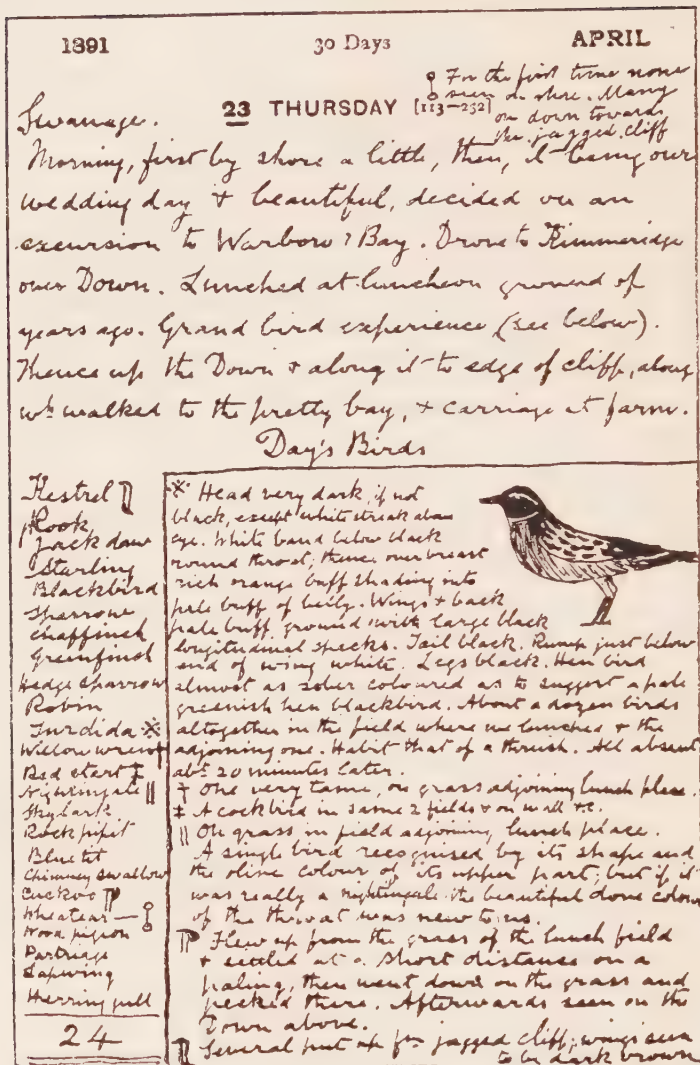 1891 30 Days APRIL
For the first time none
seen on shore. Many
on down towards
the jagged cliff
23 THURSDAY [113—252]
Swanage.
Morning, first by shore a little, then, it being our
wedding day & beautiful, decided on an
excursion to Warbow? Bay. Drove to Kimmeridge
over Down. Lunched at luncheon ground of
years ago. Grand bird experience (see below).
Thence up the Down & along it to edge of cliff, along
wh walked to the pretty bay, & carriage at farm.
Day's Birds
Kestrel
Rook
Jackdaw
Starling
Blackbird
Sparrow
Chaffinch
Greenfinch
Hedge Sparrow
Robin
Turdida ※
Willow wren †
Red start ‡
Nightingale ||
Skylark
Rock pipit
Blue tit
Chimney swallow
Cuckoo
Wheatear —
Wood pigeon
Partridge
Lapwing
Herring gull
24
※ Head very dark, if not
black, except white streak above
eye. White band below black
round throat; thence over breast
rich orange buff shading into
pale buff of belly. Wings & back
pale buff ground with large black
longitudinal specks. Tail black. Rump just below
end of wing white. Legs black. Hen bird
almost as sober coloured as to suggest a pale
greenish hen blackbird. About a dozen birds
altogether in the field where we lunched & the
adjoining one. Habit that of a thrush. All absent
abt 20 minutes later.
† One very tame, on grass adjoining lunch place.
‡ A cock bird in same 2 fields & on wall &c.
|| On grass in field adjoining lunch place.
A single bird recognised by its shape and
the olive colour of its upper part; but if it
was really a nightingale the beautiful dove colour
of the throat was new to us.
Flew up from the grass of the lunch field
& settled at a short distance on a
paling, then went down on the grass and
pecked there. Afterwards seen on the
Down above.
Several put up fm jagged cliff; wings seen
to be dark brown